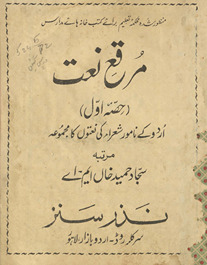 منظور شدہ محکمہ تعلیم برائے کتب خانہ ہائے مدارس
مرقع نعت
(حصہ اوّل)
اردو کے نامور شعراء کی نعتوں کا مجموعہ
مرتبہ
سجاد حمید خاں ایم۔اے
نذر سنز
سرکلر روڈ۔اردو بازار۔لاہور